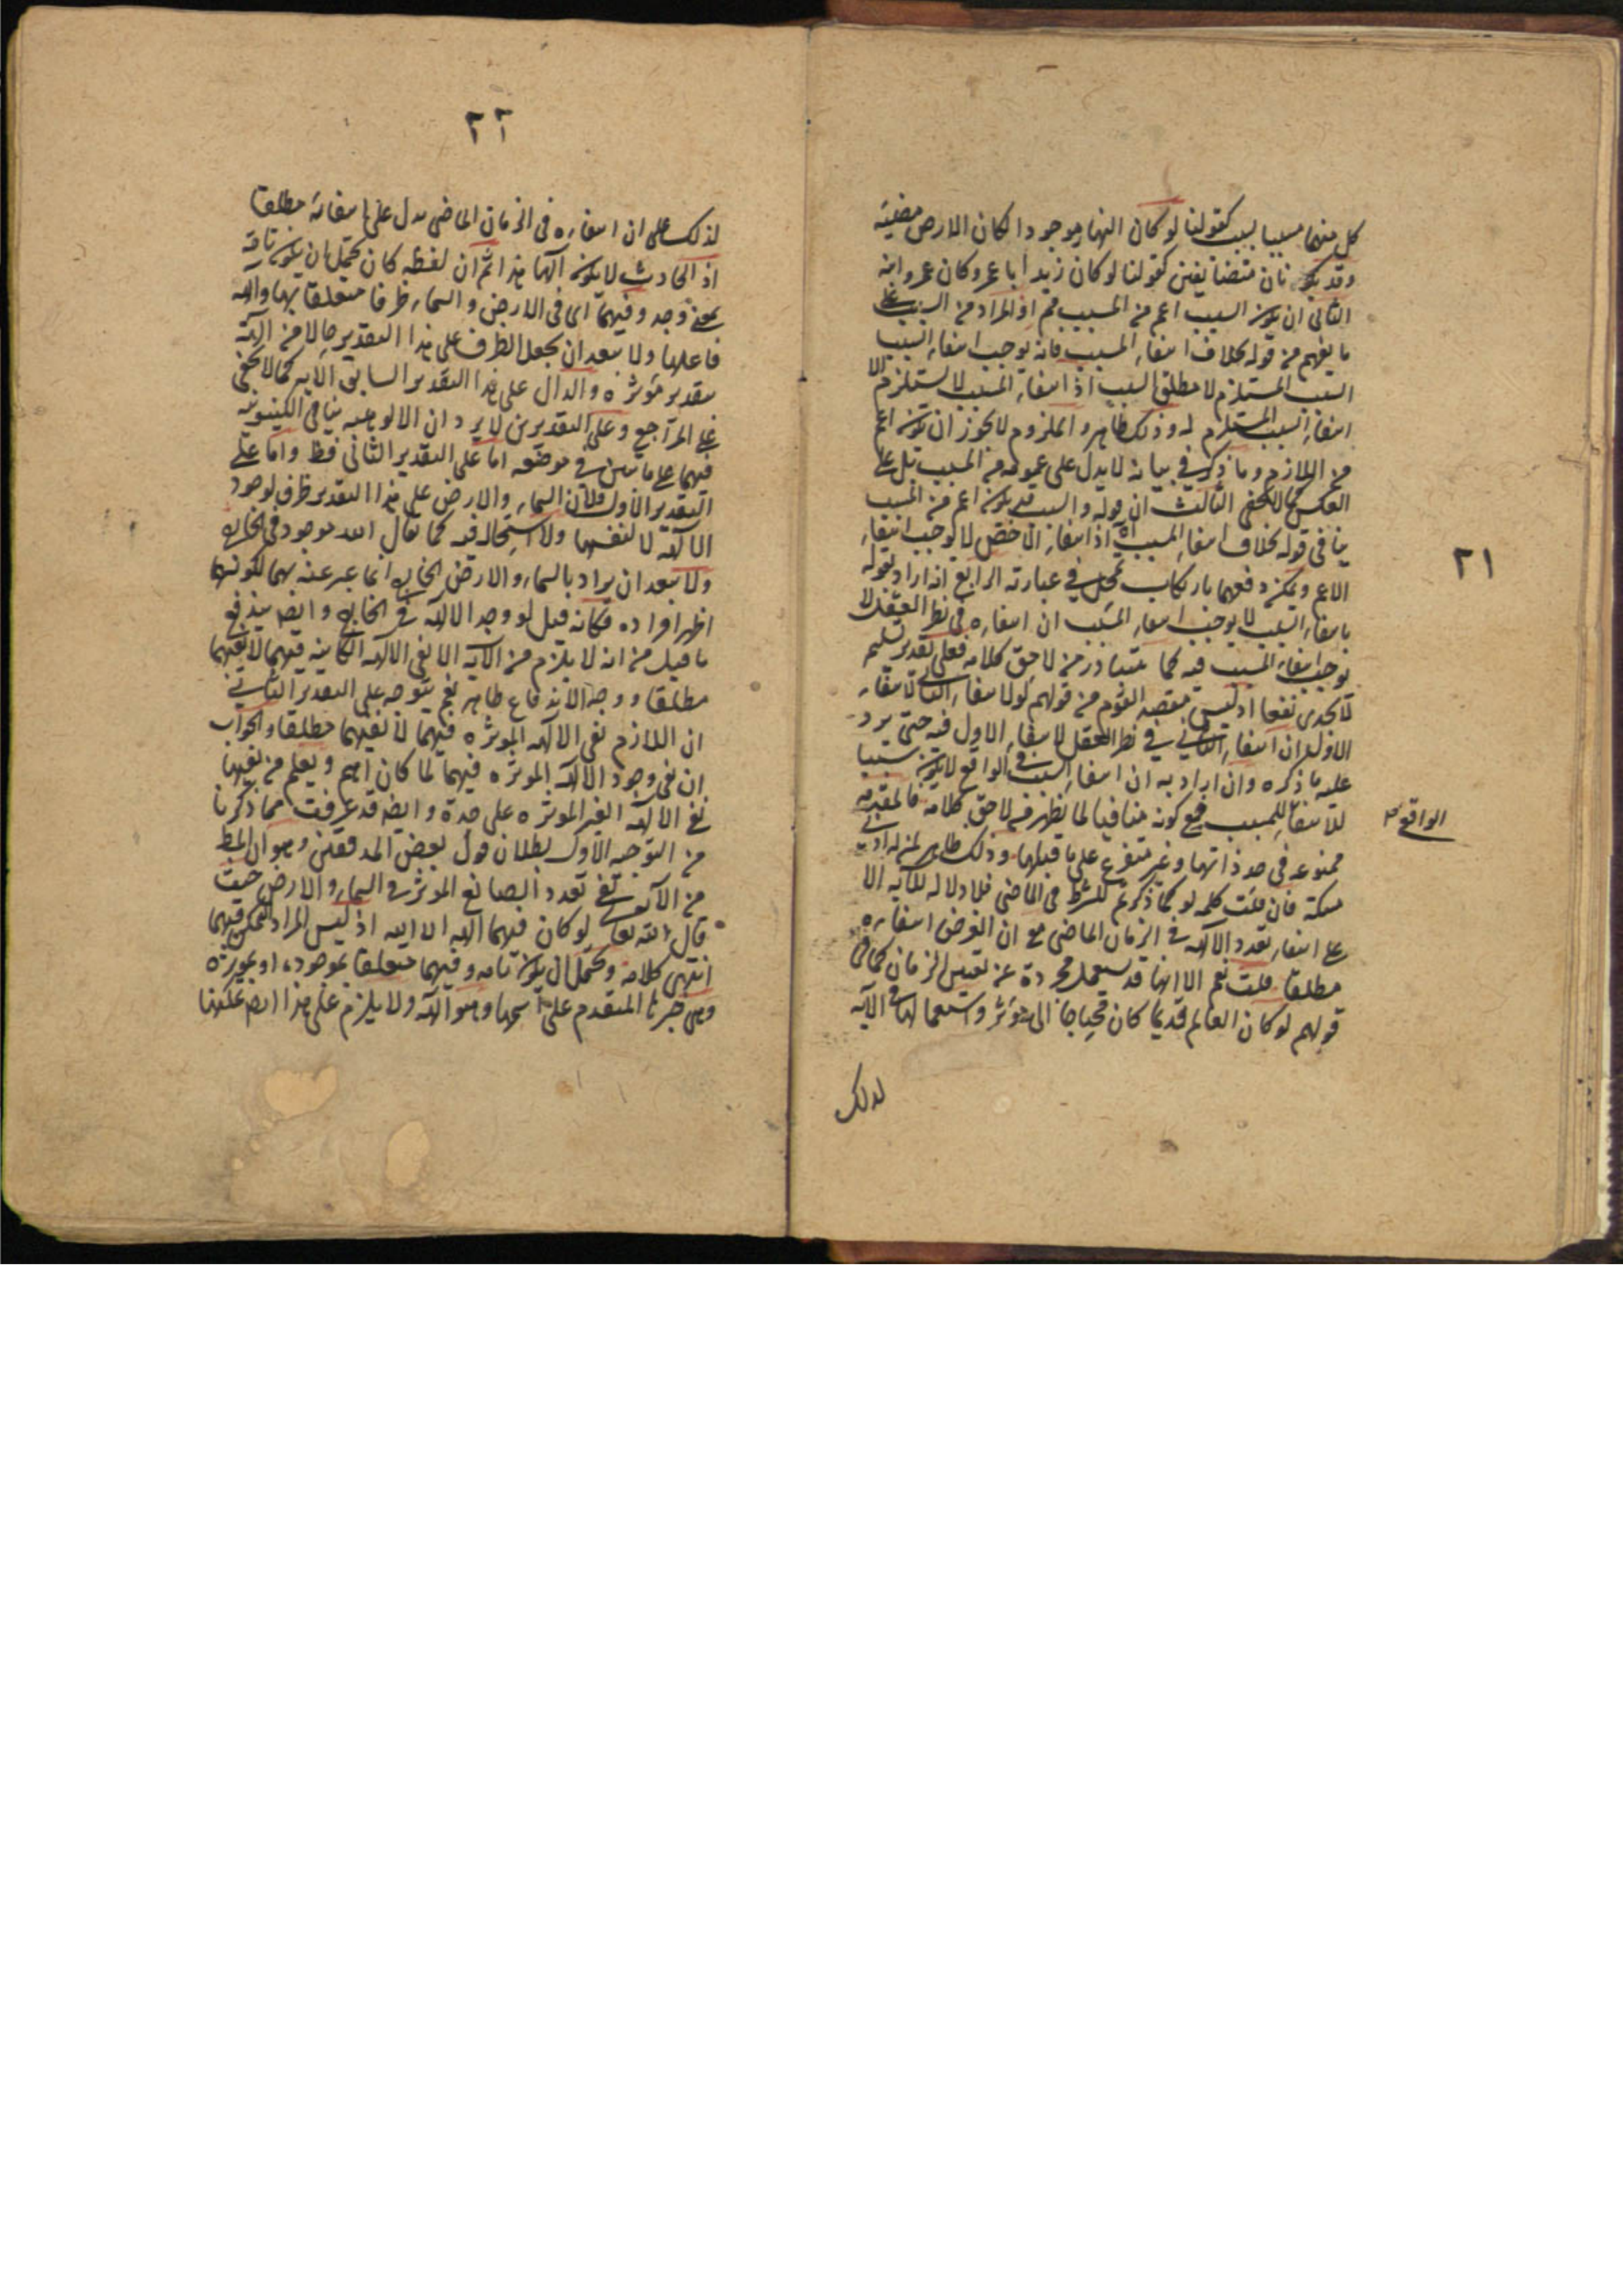 ٢١
كل منهما مسببا لسبب كقولنا لو كان النهار موجودا لكان الارض مضيئة
وقد يكونان متضائفين كقولنا لو كان زيد أبا عمرو كان عمرو ابنه
الثاني ان يكون السبب اعم من المسبب ثم اذ المراد من السبب على
ما يفهم من قوله بخلاف انتفاء المسبب فانه يوجب انتفاء السبب
السبب المستلزم لا مطلق السبب اذ انتفاء المسبب لا يستلزم الا
انتفاء السبب المستلزم له وذلك ظاهر والملزوم لا يجوز ان يكون اعم
من اللازم وما ذكر في بيانه لا يدل على عمومه من المسبب بل على
العكس كما لا يخفى الثالث ان قوله والسبب قد يكون اعم من المسبب
ينافي قوله بخلاف انتفاء المسبب اه اذ انتفاء الاخص لا يوجب انتفاء
الاعم ويمكن دفعهما بارتكاب تمحل في عبارته الرابع انه اراد بقوله
بانتفاء السبب لا يوجب انتفاء المسبب ان انتفاءه في نظر العقل لا
يوجب انتفاء المسبب فيه كما يتبادر من لاحق كلامه فعلى تقدير تسليمه
لا يجدي نفعا اذ ليس مقصد القوم من قولهم لو لانتفاء الثاني لانتفاء
الاول ان انتفاء الثاني في نظر العقل لانتفاء الاول فيه حتى يرد
عليه ما ذكره وان اراد به ان انتفاء السبب في الواقع لا يكون سببا
للانتفاء للمسبب فمع كونه منافيا لما يظهر من لاحق كلامه فالمقدمة
الواقع
ممنوعة في حد ذاتها وغير متفرع على ما قبلها وذلك ظاهر لمن له ادنى
مسكة فان قلت كلمه لو كما ذكرتم للشرط في الماضي فلا دلالة للآية الا
على انتفاء تعدد الآلهة في الزمان الماضي مع ان الغرض انتفاءه
مطلقا قلت نعم الا انها قد تستعمل مجردة عن تعيين الزمان كما في
قولهم لو كان العالم قديما كان محتاجا الى مؤثر واستعمالها في الآية
لذلك
٢٢
لذلك على ان انتفاءه في الزمان الماضي يدل على انتفائه مطلقا
اذ الحادث لا يكون الها هذا ثم ان لفظة كان يحتمل ان يكون تامة
بمعنى وجد وفيهما اى في الارض والسماء ظرفا متعلقا بها وآلهة
فاعلها ولا يبعد ان يجعل الظرف على هذا التقدير حالا من الهة
بتقدير مؤثرة والدال على هذا التقدير السابق الآية كما لا يخفى
على المراجع وعلى التقديرين لا يرد ان الالوهية ينافي الكينونية
فيهما على ما بين في موضعه اما على التقدير الثاني فظ واما على
التقدير الاول فلان السماء والارض على هذا التقدير ظرف لوجود
الآلهة لا لنفسها ولا استحالة فيه كما يقال الله موجود في الخارج
ولا يبعد ان يراد بالسماء والارض الخارج انما عبر عنه بهما لكونهما
اظهر افراده فكانه قيل لو وجد الآلهة في الخارج وايضا يندفع
ما قيل من انه لا يلزم من الآية الا نفي الآلهة الكاينة فيهما لا نفيها
مطلقا ووجه الاندفاع ظاهر نعم يتوجه على التقدير الثاني
ان اللازم نفي الآلهة المؤثرة فيهما لا نفيهما مطلقا والجواب
ان نفي وجود الآلهة المؤثرة فيهما لما كان اهم ويعلم من نفيها
نفي الآلهة الغير المؤثرة على حدة وايضا قد عرفت مما ذكرنا
من التوجيه الاول بطلان قول بعض المدققين وهو ان المط
من الآية نفي تعدد الصانع المؤثر في السماء والارض حيث
قال الله تعالى لو كان فيهما الهة الا الله اذ ليس المراد التمكن فيهما
انتهى كلامه ويحتمل ان يكون تامه وفيهما متعلقا بموجودة او بمؤثرة
وهي خبرها المتقدم على اسمها وهو آلهة ولا يلزم على هذا ايضا تمكنها